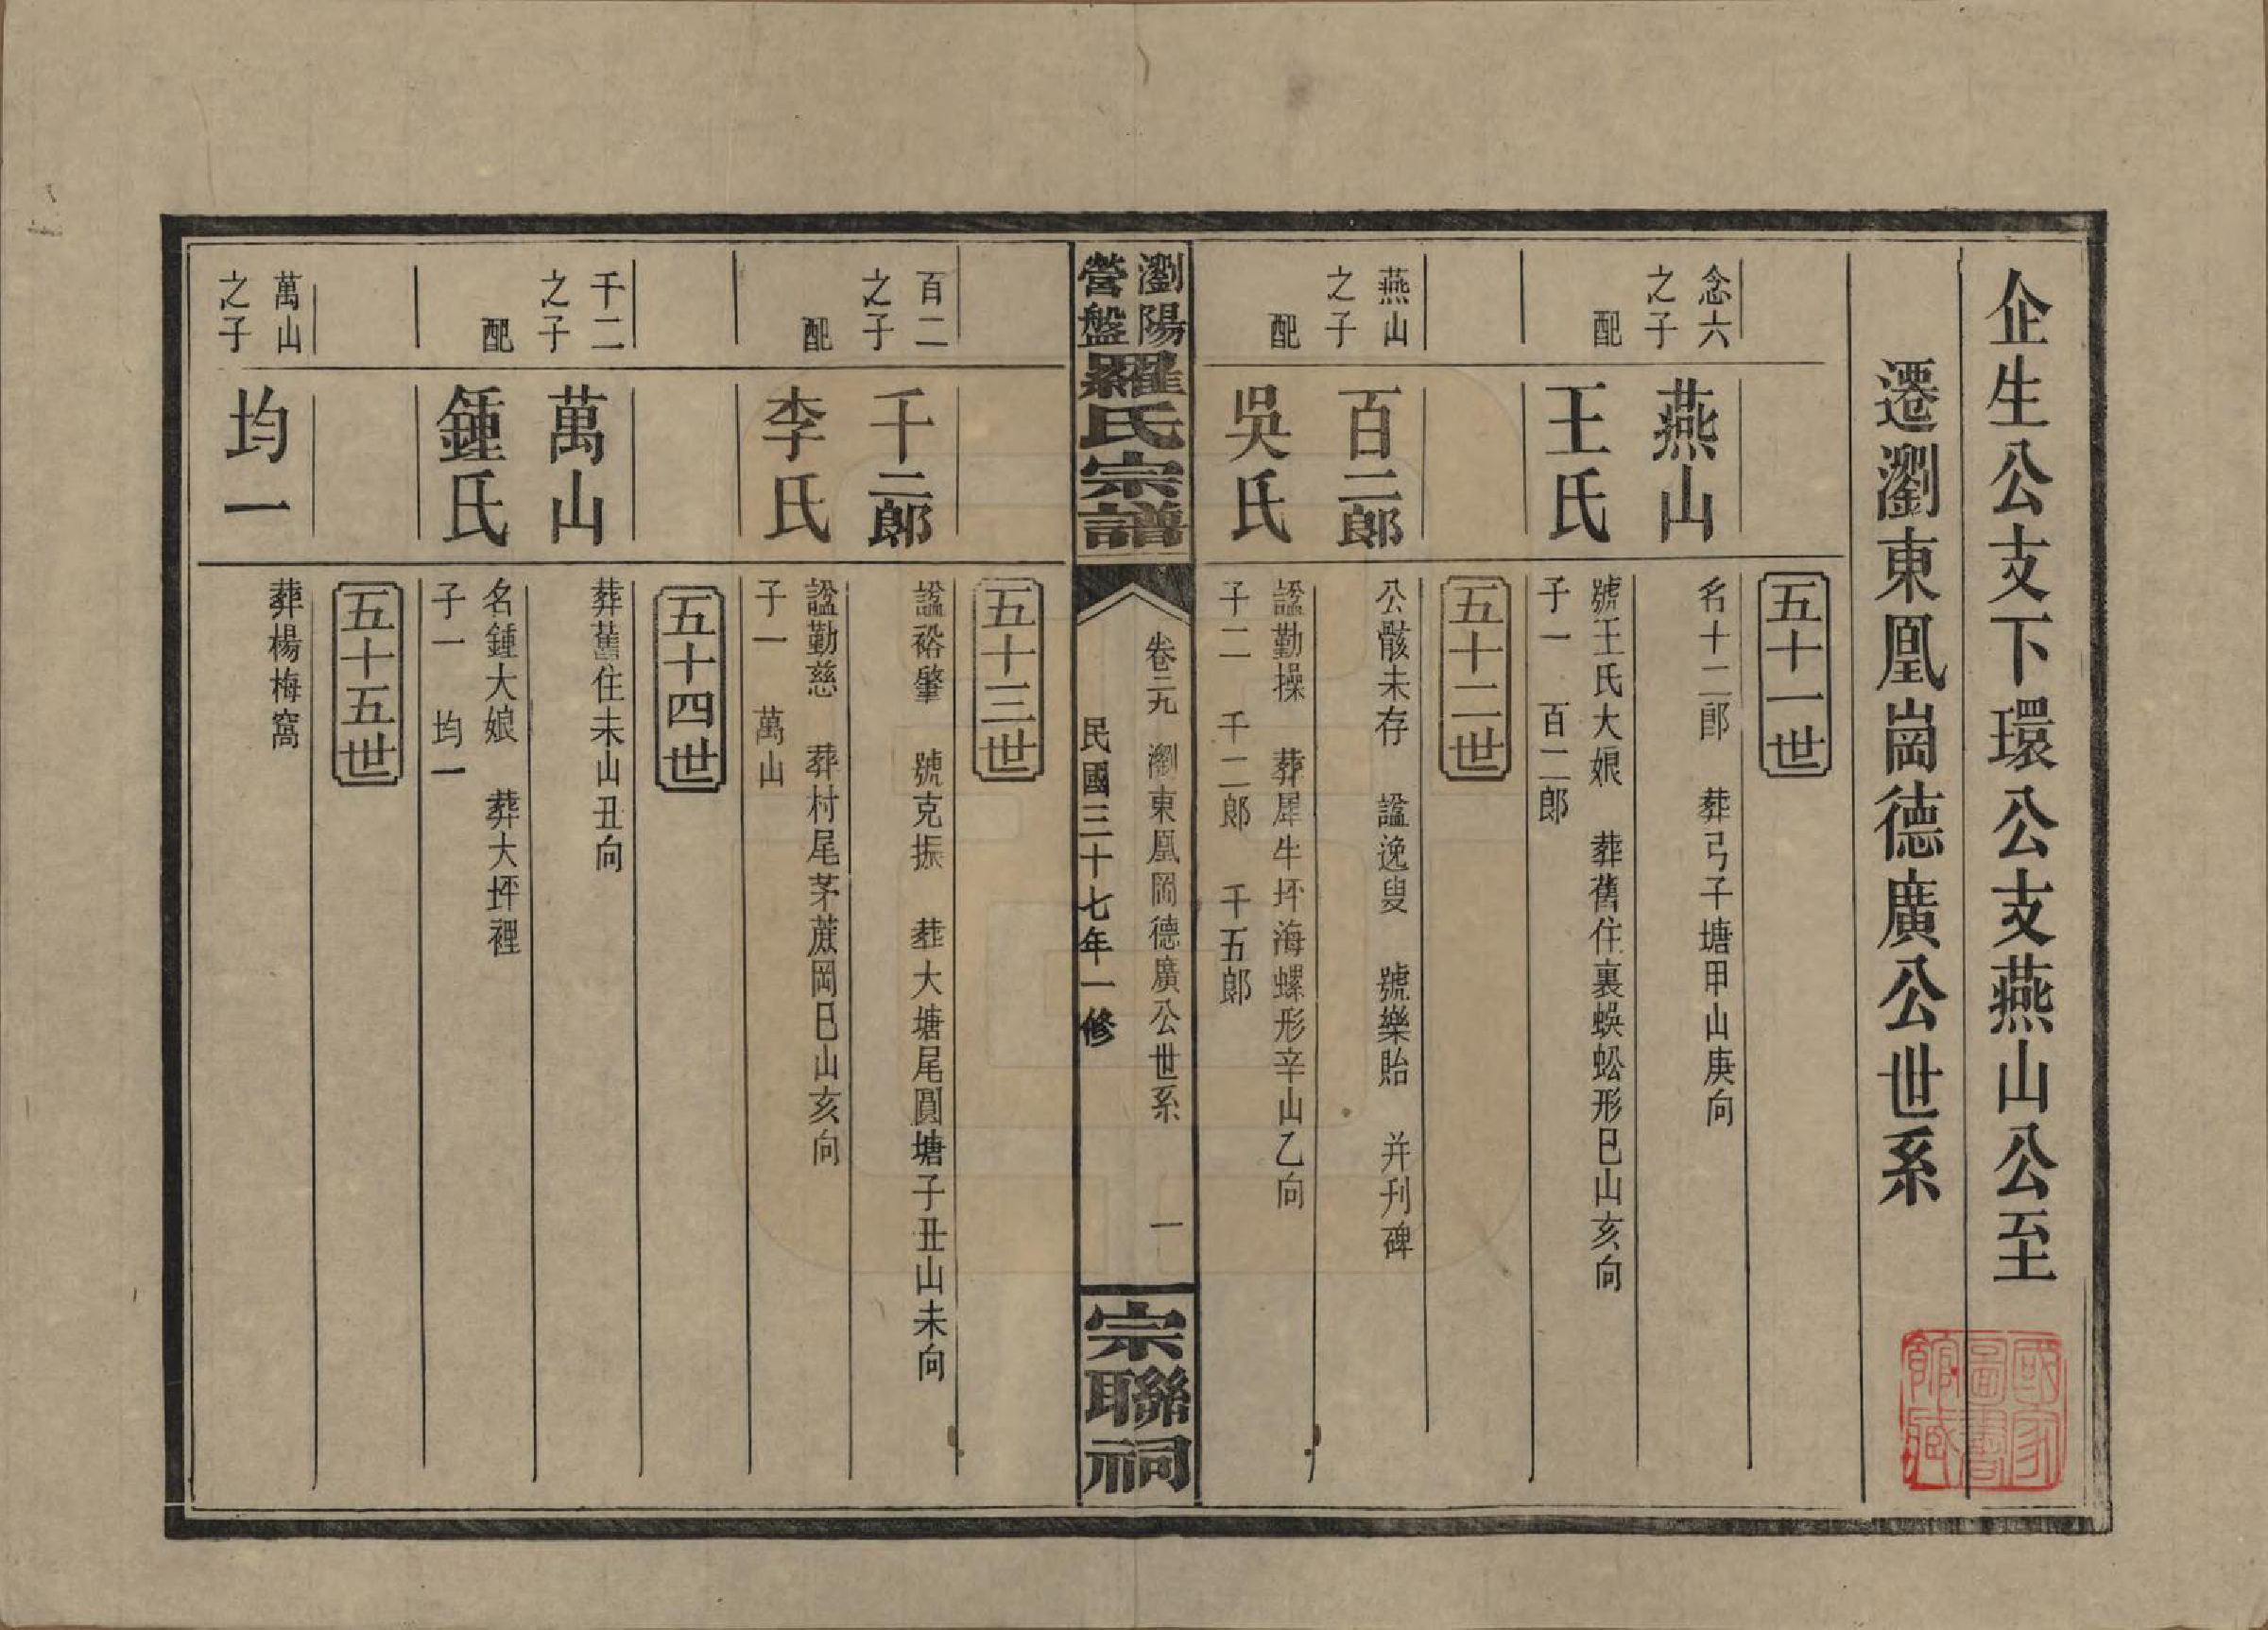 企生公支下環公支燕山公至
遷瀏東凰崗德廣公世系
五十一世
念六之子
燕山
名十二郎 葬弓子塘甲山庚向
配
王氏
號王氏大娘 葬舊住裏蜈蚣形巳山亥向
子一 百二郎
五十二世
燕山之子
百二郎
公骸未存 諡逸叟 號樂貽 并刋碑
配
吳氏
諡勤操 葬犀牛坪海螺形辛山乙向
子二 千二郎 千五郎
瀏陽營盤羅氏宗譜
卷二九 瀏東凰岡德廣公世系 一
民國三十七年一修
宗聯祠
五十三世
百二之子
千二郎
諡裕肇 號克振 葬大塘尾圓塘子丑山未向
配
李氏
諡勤慈 葬村尾茅蔗岡巳山亥向
子一 萬山
五十四世
千二之子
萬山
葬舊住未山丑向
配
鍾氏
名鍾大娘 葬大坪裡
子一 均一
五十五世
萬山之子
均一
葬楊梅窩
國家圖書館藏